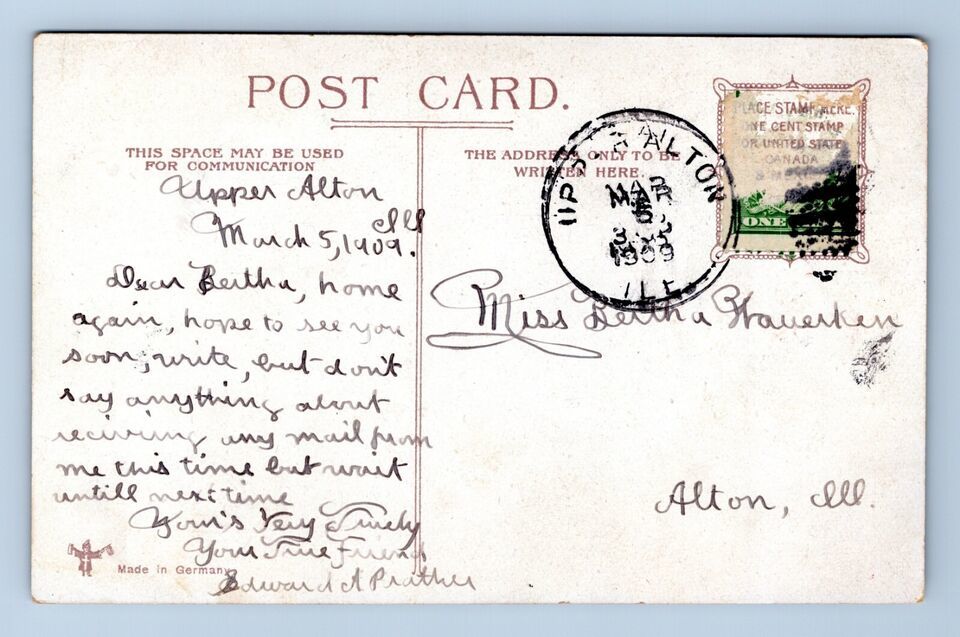 POST CARD.
THIS SPACE MAY BE USED
FOR COMMUNICATION
THE ADDRESS ONLY TO BE
WRITTEN HERE.
PLACE STAMP HERE.
ONE CENT STAMP
FOR UNITED STATES
CANADA
ONE
UPPER ALTON
MAR
5
1909
ILL
Upper Alton
Ill
March 5, 1909.
Dear Bertha, home
again, hope to see you
soon, write, but don't
say anything about
reciving any mail from
me this time but wait
untill next time
Your's Very Truely
Your True Friend
Edward A Prather
Miss Bertha
Alton, Ill.
Made in Germany